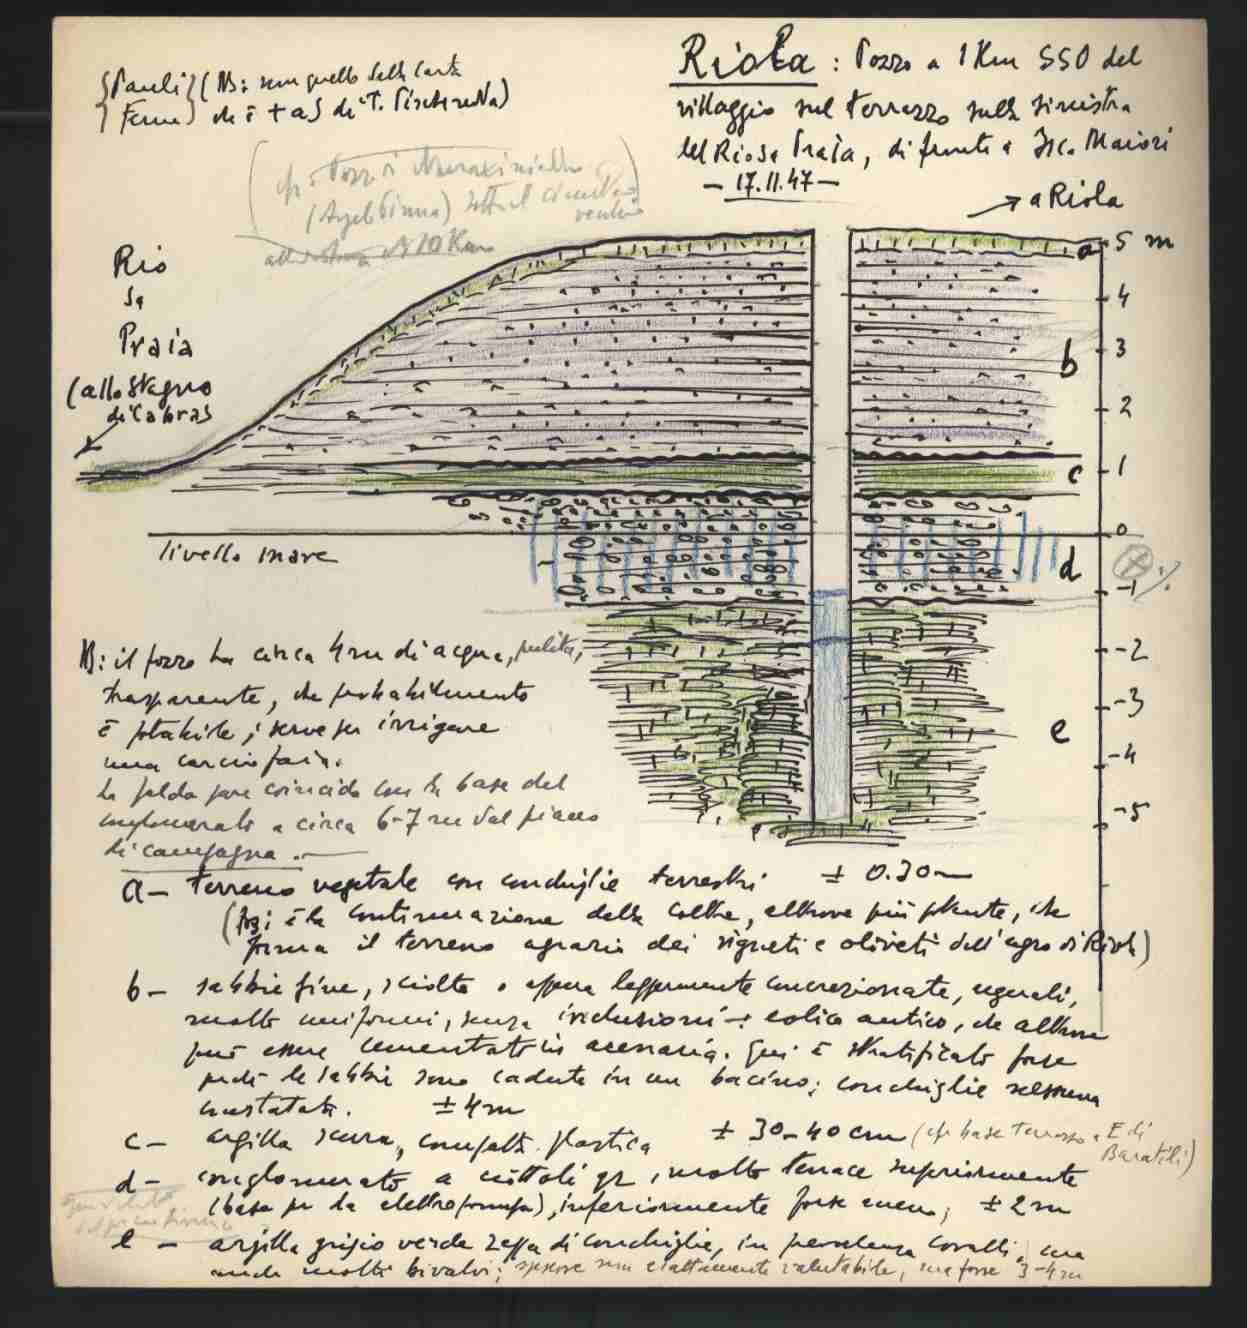 Riola : Pozzo a 1 Km SSO del
villaggio sul terrazzo sulla sinistra
del Rio Sa Praia, di fronte a Isca Maiori
— 17.11.47 —
Pauli (NB: non quello della Carta
Fenu che è + a S di T. Pischeredda)
(cfr: Pozzi
sotto il cimitero
vecchio
10 Km
→ a Riola
Rio
Sa
Praia
(allo Stagno
di Cabras
a 5 m
4
b 3
2
c 1
0
d -1
-2
-3
e -4
-5
livello mare
NB: il pozzo ha circa 4 m di acqua, pulita,
trasparente, che probabilmente
è potabile; serve per irrigare
una carciofaia.
La falda pare coincida con la base del
conglomerato a circa 6-7 m dal piano
di campagna. —
a — terreno vegetale con conchiglie terrestri ± 0.30 m
(NB: è la continuazione della coltre, altrove più potente, che
forma il terreno agrario dei vigneti e oliveti dell'agro di Riola)
b — sabbie fine, sciolte o appena leggermente concrezionate, uguali,
molto uniformi, senza inclusioni: eolico antico, che altrove
può essere cementato in arenaria. Qui è stratificato forse
perché le sabbie sono cadute in un bacino; conchiglie nessuna
constatata. ± 4 m
c — argilla scura, compatta. plastica ± 30-40 cm (cfr base terrazzo a E di
Baratili)
d — conglomerato a ciottoli gr, molto tenace superiormente
(base per la elettropompa), inferiormente forse meno; ± 2 m
e — argilla grigio verde zeppa di conchiglie, in prevalenza Coralli, ma
anche molti bivalvi; spessore non esattamente valutabile, ma forse 3-4 m